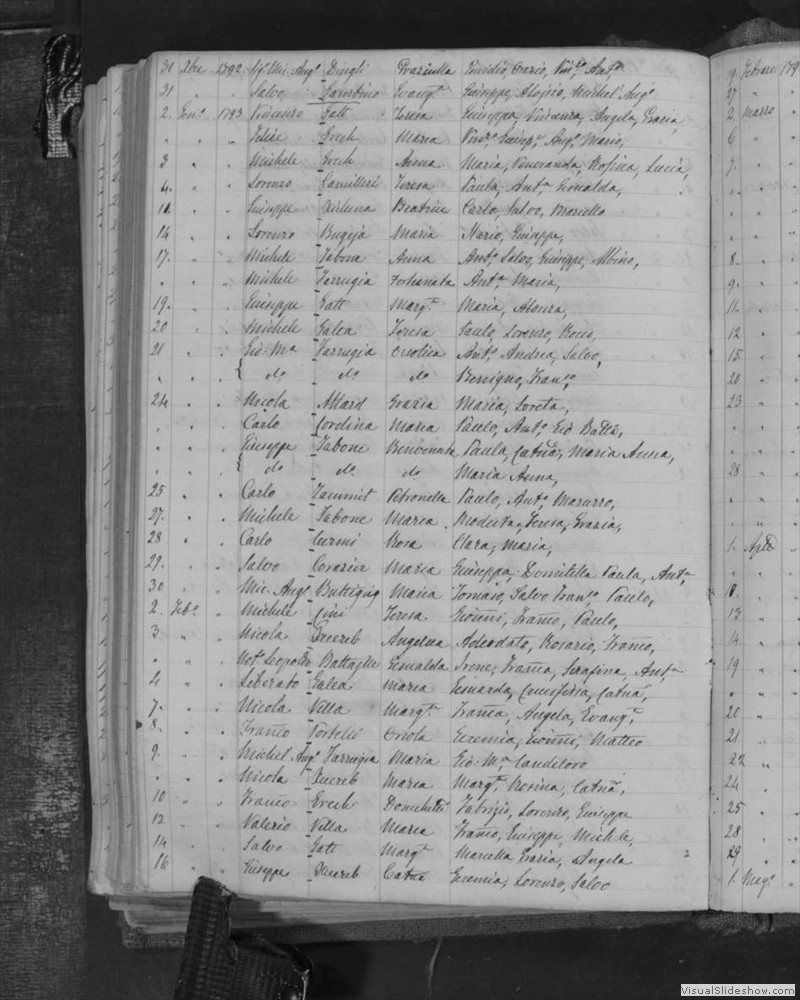 31 Xbre 1792 Sig. Mic. Ang.º Dingli Graziulla Emidio, Orazio, Vin.zo Ant.º
31 " " Salvo Evang.ta Giuseppe, Aloisio, Michel Ang.º
2. Gen.º 1793 Vincenzo Gatt Teresa Giuseppa Vincenza, Angela, Grazia,
" " " Felice Grech Maria Vin.zo Giusep.e Ang.º Mario,
3 " " Michele Grech Anna Maria, Veneranda, Rosina, Lucia,
4. " " Lorenzo Camilleri Teresa Paula, Ant.a Esmalda,
11. " " Giuseppe Xirluna Beatrice Carlo, Salvo, Marcello
14 " " Lorenzo Bugeja Maria Mario, Giuseppe,
17. " " Michele Tabone Anna Ant.º Salvo, Giuseppe, Albino,
" " Michele Farrugia Fortunata Ant.a Maria,
19. " " Giuseppe Gatt Marg.ta Maria, Alonza,
20 " " Michele Galea Teresa Saulo, Lorenzo, Rocco,
21 " " Gio: M.a Farrugia Orsolica Ant.º Andrea, Salvo,
" " { do do do Benigno, Fran.co,
24 " " Nicola Attard Grazia Maria, Loreta,
" " Carlo Cordina Maria Paulo, Ant.º Gio Batta,
" " Giuseppe Tabone Benvenuta Paula, Catña, Maria Anna,
" " { do do do Maria Anna,
25 " " Carlo Zammit Petronella Paulo, Ant.º
27. " " Michele Tabone Maria Modesta, Teresa, Grazia,
28 " " Carlo Curmi Rosa Clara, Maria,
29. " " Salvo Maria Giuseppa, Domitilla Paula, Ant.a
30 " " Mic. Ang.º Buttigieg Maria Tomaso, Salvo Fran.co Paulo,
2. Feb.º " Michele Cini Teresa Gioñni, Frañco, Paulo,
3 " " Nicola Ducreb Angelica Adeodato, Rosario, Frañco,
" " Not.º Leopoldo Battaglia Esmalda Irene, Frañca, Serafina, Ant.a
4 " " Liberato Galea Maria Catña,
7. " " Nicola Villa Marg.ta Frañca, Angela, Evang.ta
8. " " Frañco Portelli Orsola Geremia, Gioñni, Matteo
9. " " Michel Ang.º Farrugia Maria Gio: M.a Candeloro
" " Nicola Ducreb Maria Marg.ta Rosina, Catña,
10 " " Frañco Grech Fabrizio, Lorenzo, Giuseppe
12 " " Valerio Villa Maria Frañco, Giuseppe, Michele,
14 " " Salvo Gatt Marg.ta Mariella Grazia, Angela
16 " " Giuseppe Ducreb Catña Geremia, Lorenzo, Salvo
19. Febraro 179
27 "
2. Marzo "
6 "
7. "
8. "
9. "
11. "
12 "
15. "
20 "
23 "
28 "
1. Aple
13 "
14. "
19 "
20 "
21 "
22 "
24 "
25 "
28 "
29 "
1. Mag.º
VisualSlideshow.com